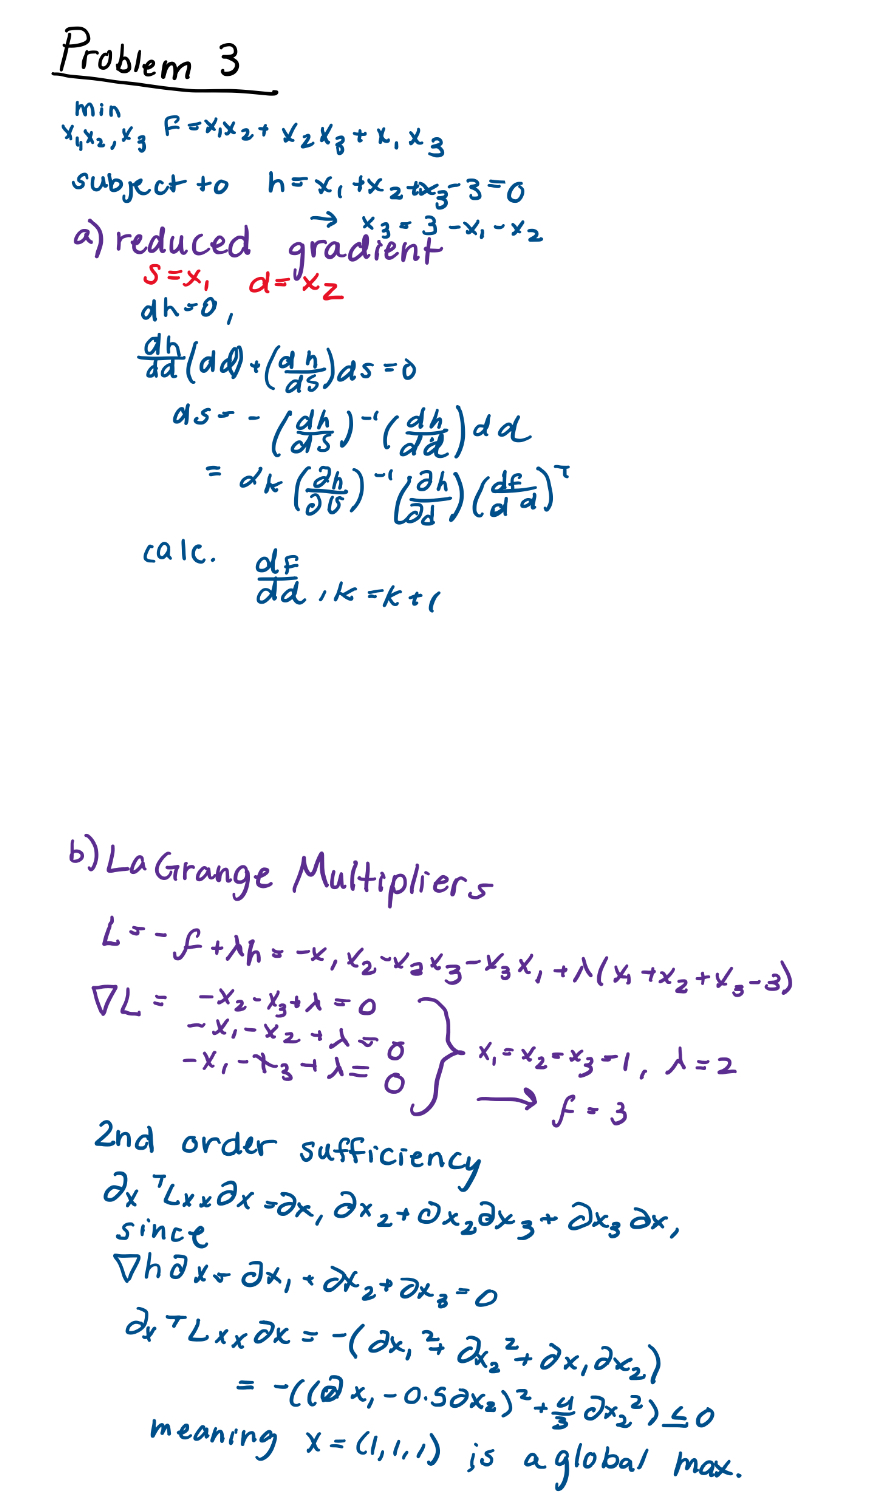 Problem 3
min
x₁,x₂,x₃ F=x₁x₂+ x₂x₃+x₁x₃
subject to h=x₁+x₂+x₃-3=0
→ x₃=3-x₁-x₂
a) reduced gradient
s=x₁ d=x₂
dh=0,
dh/dd(dd)+(dh/ds)ds=0
ds=-(dh/ds)⁻¹(dh/dd)dd
= αk(∂h/∂s)⁻¹(∂h/∂d)(df/dd)ᵀ
calc. dF/dd, k=k+1
b) LaGrange Multipliers
L=-f+λh=-x₁x₂-x₂x₃-x₃x₁+λ(x₁+x₂+x₃-3)
∇L= -x₂-x₃+λ=0
-x₁-x₂+λ=0
-x₁-x₃+λ=0
x₁=x₂=x₃=1, λ=2
→ f=3
2nd order sufficiency
∂xᵀLxx∂x=∂x₁∂x₂+∂x₂∂x₃+∂x₃∂x₁
since
∇h∂x=∂x₁+∂x₂+∂x₃=0
∂xᵀLxx∂x=-(∂x₁²+∂x₂²+∂x₁∂x₂)
=-((∂x₁-0.5∂x₂)²+4/3∂x₂²)≤0
meaning x=(1,1,1) is a global max.